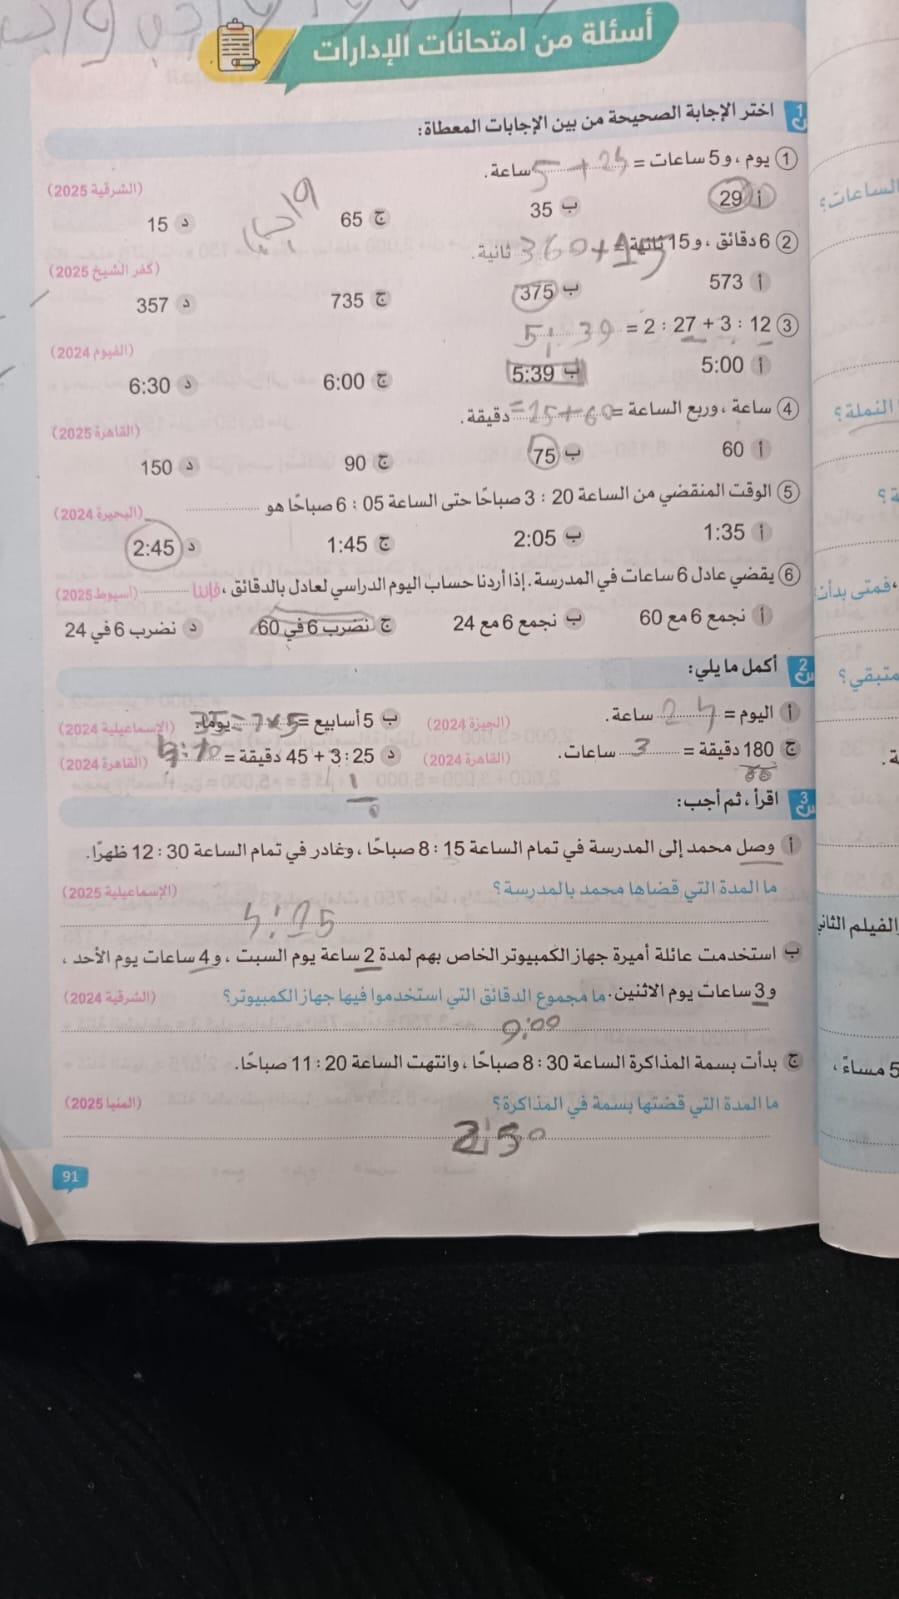 أسئلة من امتحانات الإدارات
س1 اختر الإجابة الصحيحة من بين الإجابات المعطاة:
① يوم، و5 ساعات = 24 + 5 ساعة. (الشرقية 2025)
أ 29 ب 35 ج 65 د 15
② 6 دقائق، و15 ثانية = 360 + 15 ثانية. (كفر الشيخ 2025)
أ 573 ب 375 ج 735 د 357
③ 12 : 3 + 27 : 2 = 5:39 (الفيوم 2024)
أ 5:00 ب 5:39 ج 6:00 د 6:30
④ ساعة، وربع الساعة = 60 + 15 = دقيقة. (القاهرة 2025)
أ 60 ب 75 ج 90 د 150
⑤ الوقت المنقضي من الساعة 20 : 3 صباحًا حتى الساعة 05 : 6 صباحًا هو (البحيرة 2024)
أ 1:35 ب 2:05 ج 1:45 د 2:45
⑥ يقضي عادل 6 ساعات في المدرسة. إذا أردنا حساب اليوم الدراسي لعادل بالدقائق، فإننا (أسيوط 2025)
أ نجمع 6 مع 60 ب نجمع 6 مع 24 ج نضرب 6 في 60 د نضرب 6 في 24
س2 أكمل ما يلي:
أ اليوم = 24 ساعة. (الجيزة 2024) ب 5 أسابيع = 5×7=35 يومًا. (الإسماعيلية 2024)
ج 180 دقيقة = 3 ساعات. (القاهرة 2024) د 3:25 + 45 دقيقة = 4:10 (القاهرة 2024)
60
س3 اقرأ، ثم أجب:
أ وصل محمد إلى المدرسة في تمام الساعة 15 : 8 صباحًا، وغادر في تمام الساعة 30 : 12 ظهرًا.
ما المدة التي قضاها محمد بالمدرسة؟ (الإسماعيلية 2025)
4:15
ب استخدمت عائلة أميرة جهاز الكمبيوتر الخاص بهم لمدة 2 ساعة يوم السبت، و4 ساعات يوم الأحد،
و3 ساعات يوم الاثنين. ما مجموع الدقائق التي استخدموا فيها جهاز الكمبيوتر؟ (الشرقية 2024)
9:00
ج بدأت بسمة المذاكرة الساعة 30 : 8 صباحًا، وانتهت الساعة 20 : 11 صباحًا.
ما المدة التي قضتها بسمة في المذاكرة؟ (المنيا 2025)
2:50
91
الساعات؟
النملة؟
ة؟
،فمتى بدأت
متبقي؟
ة.
الفيلم الثاني
5 مساءً،